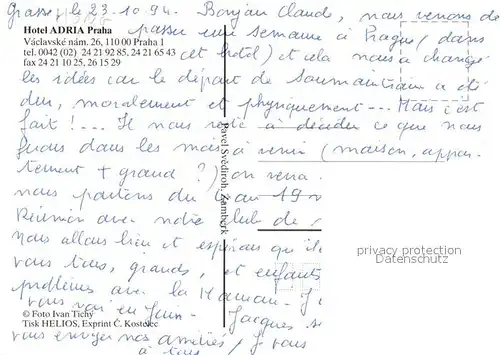 Grasse, le 23-10-94. Bonjour Claude, nous venons de
passer une semaine à Prague (dans
Hotel ADRIA Praha
Václavské nám. 26, 110 00 Praha 1
tel. 0042 (02) 24 21 92 85, 24 21 65 43
fax 24 21 10 25, 26 15 29
cet hotel) et cela nous a changé
les idées car le départ de a été
dur, moralement et physiquement... Mais c'est
fait !... Il nous reste à décider ce que nous
ferons dans les mois à venir (maison, appar-
tement + grand ?) on verra.
nous partons du 6 au 19
Réunion avec notre club de
Nous allons bien et espérons qu'il
vous tous, grands, et enfants
problèmes avec la Maman. J
vous voir en Juin. Jacques se
vous envoyer nos amitiés / Je vous
à tous
Pavel Švédiroh, Žamberk
© Foto Ivan Tichý
Tisk HELIOS, Exprint Č. Kostelec
privacy protection
Datenschutz